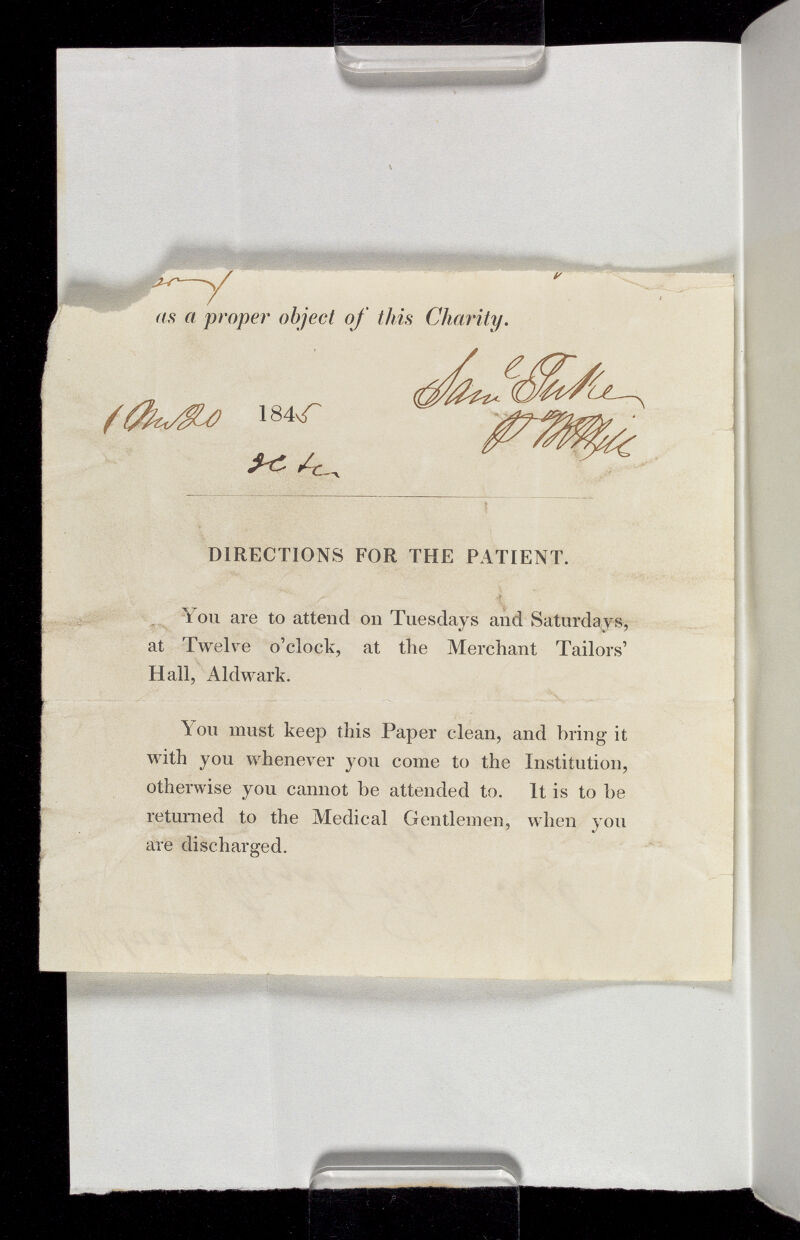 as a proper object of this Charity.
Saml Tuke
1 Mo 20 1845
DIRECTIONS FOR THE PATIENT.
You are to attend on Tuesdays and Saturdays,
at Twelve o'clock, at the Merchant Tailors'
Hall, Aldwark.
You must keep this Paper clean, and bring it
with you whenever you come to the Institution,
otherwise you cannot be attended to. It is to be
returned to the Medical Gentlemen, when you
are discharged.